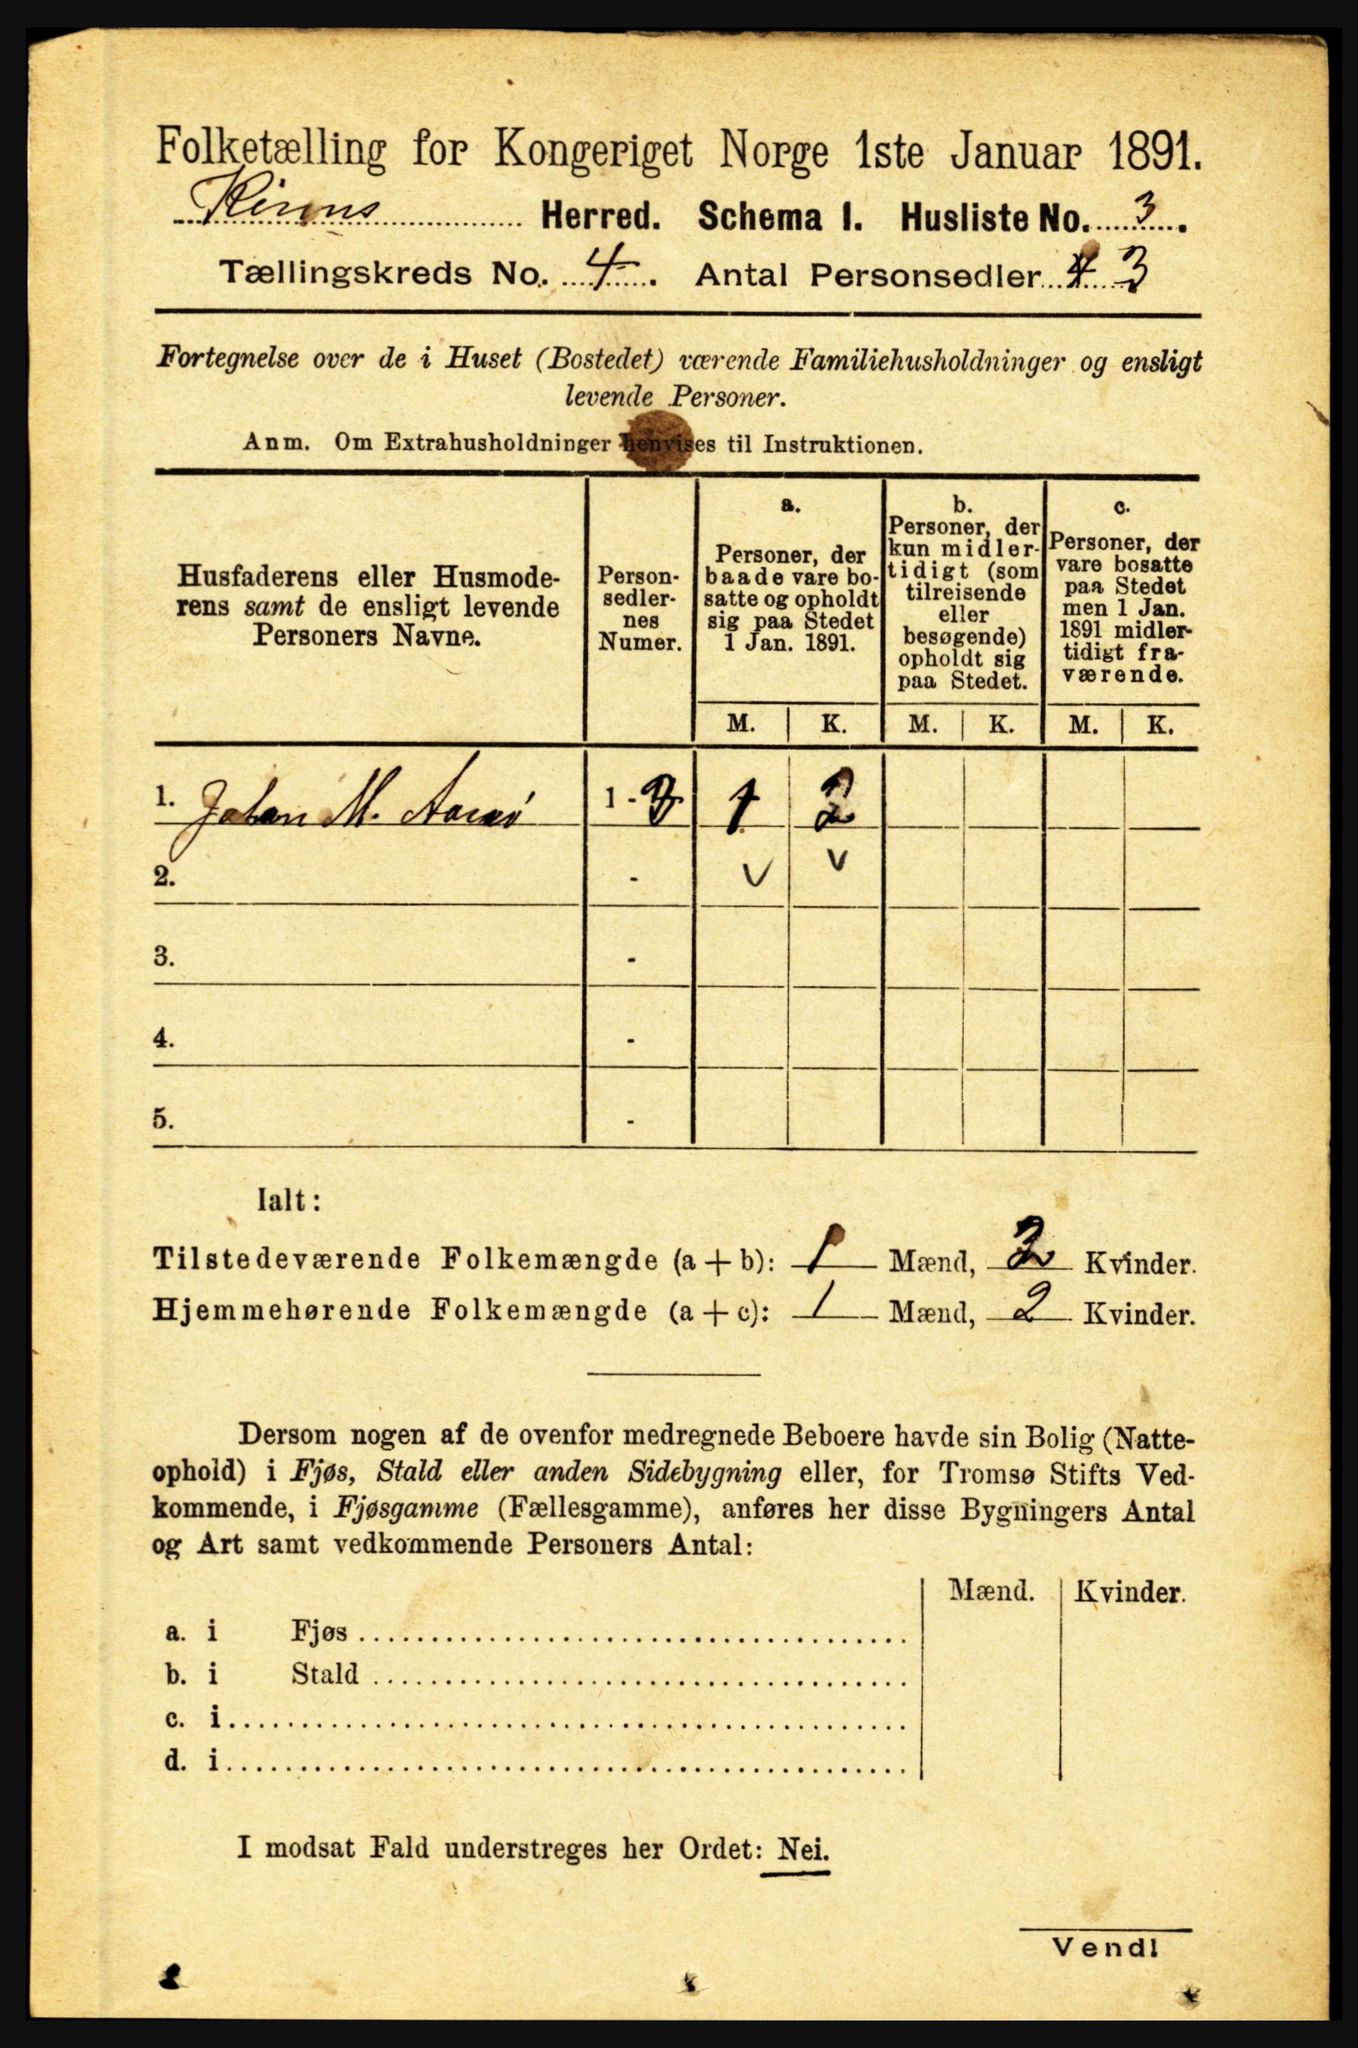 Folketælling for Kongeriget Norge 1ste Januar 1891.
Kinns Herred. Schema I. Husliste No. 3.
Tællingskreds No. 4. Antal Personsedler 4 3
Fortegnelse over de i Huset (Bostedet) værende Familiehusholdninger og ensligt
levende Personer.
Anm. Om Extrahusholdninger henvises til Instruktionen.
Husfaderens eller Husmode-
rens samt de ensligt levende
Personers Navne.
Person-
sedler-
nes
Numer.
a.
Personer, der
baade vare bo-
satte og opholdt
sig paa Stedet
1 Jan. 1891.
b.
Personer, der
kun midler-
tidigt (som
tilreisende
eller
besøgende)
opholdt sig
paa Stedet.
c.
Personer, der
vare bosatte
paa Stedet
men 1 Jan.
1891 midler-
tidigt fra-
værende.
M. K. M. K. M. K.
1. Johan M. 1 - 3 1 2
2. - v v
3. -
4. -
5. -
Ialt:
Tilstedeværende Folkemængde (a + b): 1 Mænd, 2 Kvinder.
Hjemmehørende Folkemængde (a + c): 1 Mænd, 2 Kvinder.
Dersom nogen af de ovenfor medregnede Beboere havde sin Bolig (Natte-
ophold) i Fjøs, Stald eller anden Sidebygning eller, for Tromsø Stifts Ved-
kommende, i Fjøsgamme (Fællesgamme), anføres her disse Bygningers Antal
og Art samt vedkommende Personers Antal:
Mænd. Kvinder.
a. i Fjøs
b. i Stald
c. i
d. i
I modsat Fald understreges her Ordet: Nei.
Vend!